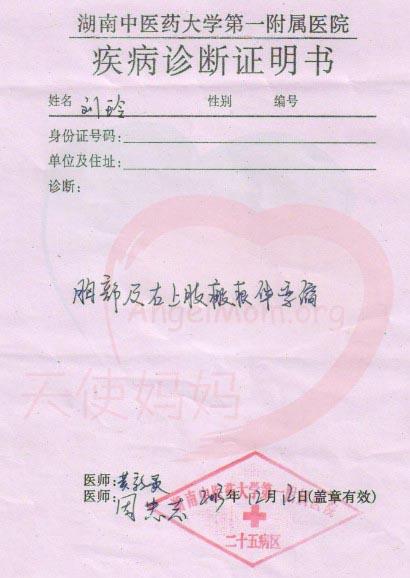 湖南中医药大学第一附属医院
疾病诊断证明书
姓名 刘玲 性别 编号
身份证号码:
单位及住址:
诊断:
胸部及右上肢瘢痕伴挛缩
AngelMom.org
天使妈妈
医师:
医师: 周忠志 年12月 日(盖章有效)
湖南中医药大学第一附属医院
二十五病区